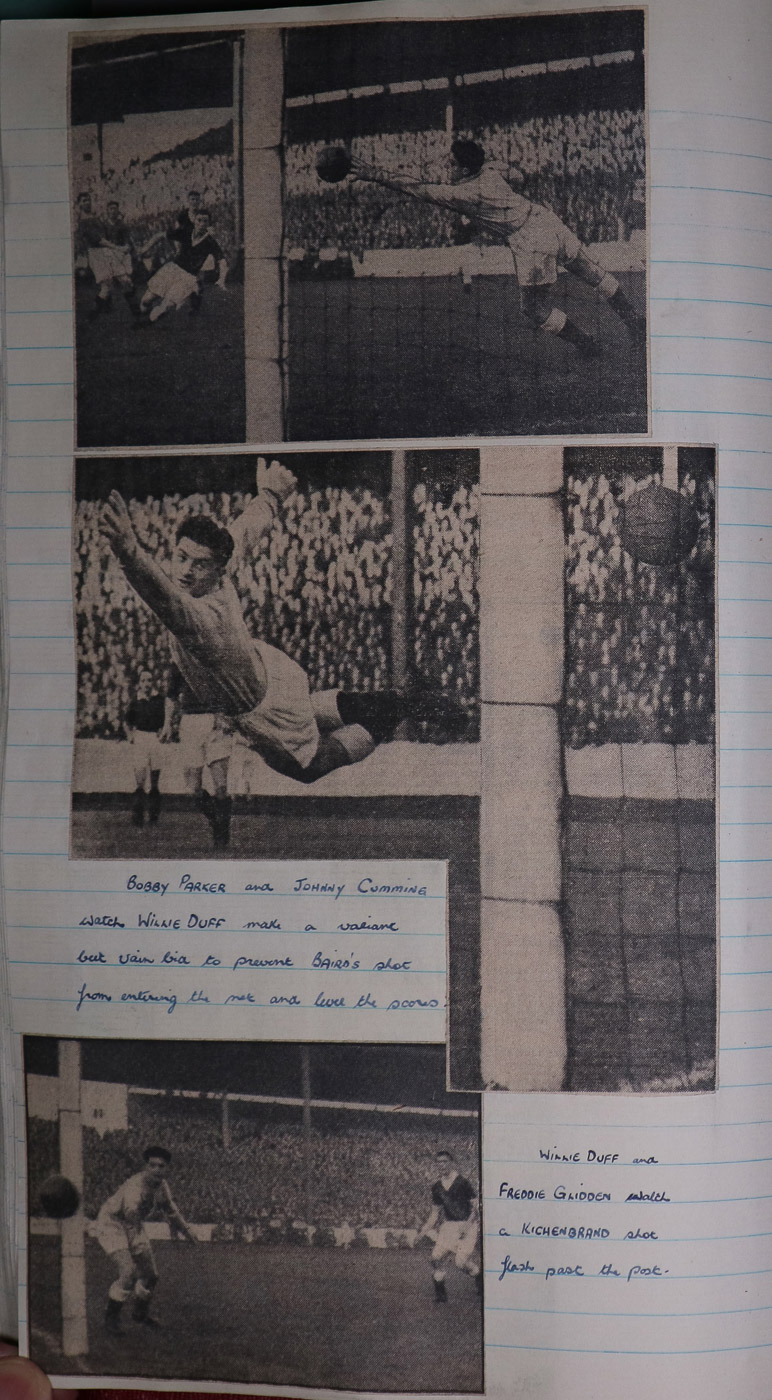 BOBBY PARKER and JOHNNY CUMMING
watch WILLIE DUFF make a valiant
but vain bid to prevent BAIRD'S shot
from entering the net and level the scores.
WILLIE DUFF and
FREDDIE GLIDDEN watch
a KICHENBRAND shot
flash past the post.